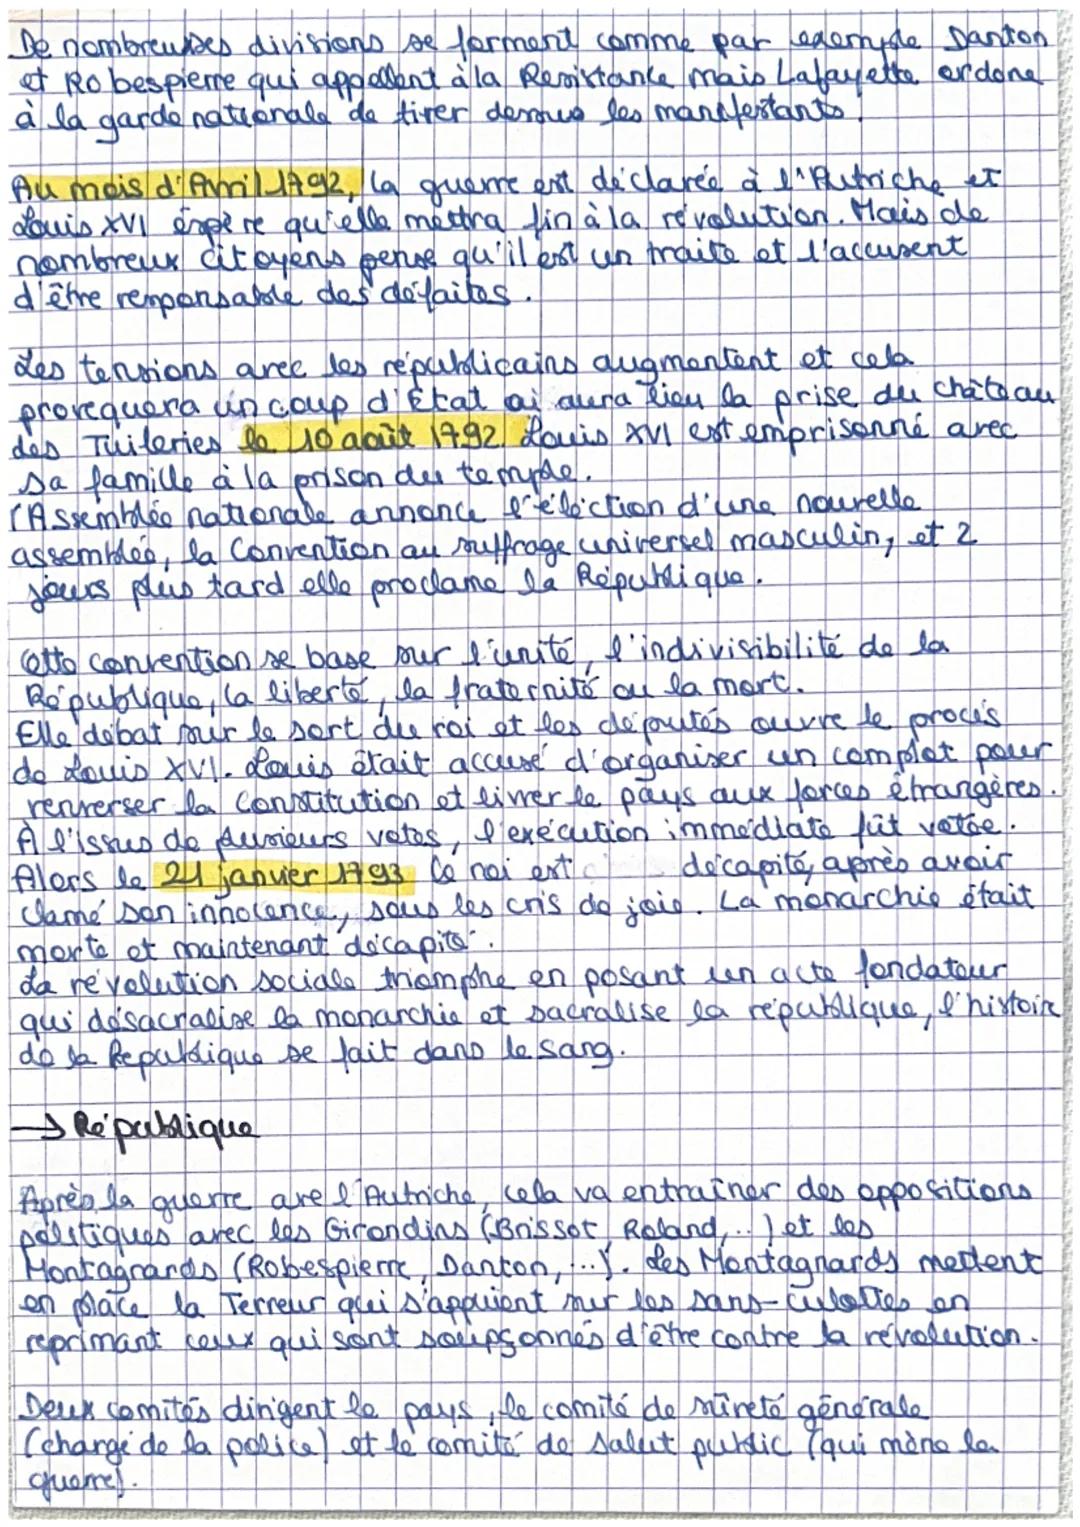 De nombreuses divisions se forment comme par exemple Danton
et Robespierre qui appellent à la Resistance mais Lafayette ordone
à la garde nationale de tirer dessus les manifestants.
Au mois d'Avril 1792, la guerre est déclarée à l'Autriche et
Louis XVI éspère qu'elle mettra fin à la révolution. Mais de
nombreux citoyens pense qu'il est un traite et l'accusent
d'être responsable des défaites.
Les tensions avec les républicains augmentent et cela
provequera un coup d'Etat où aura lieu la prise du château
des Tuileries le 10 août 1792. Louis XVI est emprisonné avec
sa famille à la prison du temple.
l'Assemblée nationale annonce l'élection d'une nouvelle
assemblée, la Convention au suffrage universel masculin, et 2
jours plus tard elle proclame la République.
Cette convention se base sur l'unité, l'indivisibilité de la
République, la liberté, la fraternité ou la mort.
Elle débat sur le sort du roi et les députés ouvre le procès
de Louis XVI. Louis était accusé d'organiser un complot pour
renverser la Constitution et livrer le pays aux forces étrangères.
À l'issus de plusieurs votes, l'exécution immédiate fût votée.
Alors le 21 janvier 1793 le roi est décapité, après avoir
clamé son innocence, sous les cris de joie. La monarchie était
morte et maintenant décapité.
La révolution sociale triomphe en posant un acte fondateur
qui désacralise la monarchie et sacralise la république, l'histoire
de la République se fait dans le sang.
→ République
Après la guerre ave l'Autriche, cela va entraîner des oppositions
politiques avec les Girondins (Brissot, Roland, ...) et les
Montagnards (Robespierre, Danton, ...). Les Montagnards mettent
en place la Terreur qui s'appuient sur les sans-culottes en
reprimant ceux qui sont soupçonnés d'être contre la révolution.
Deux comités dirigent le pays, le comité de sûreté générale
(chargé de la police) et le comité de salut public (qui mène la
guerre).